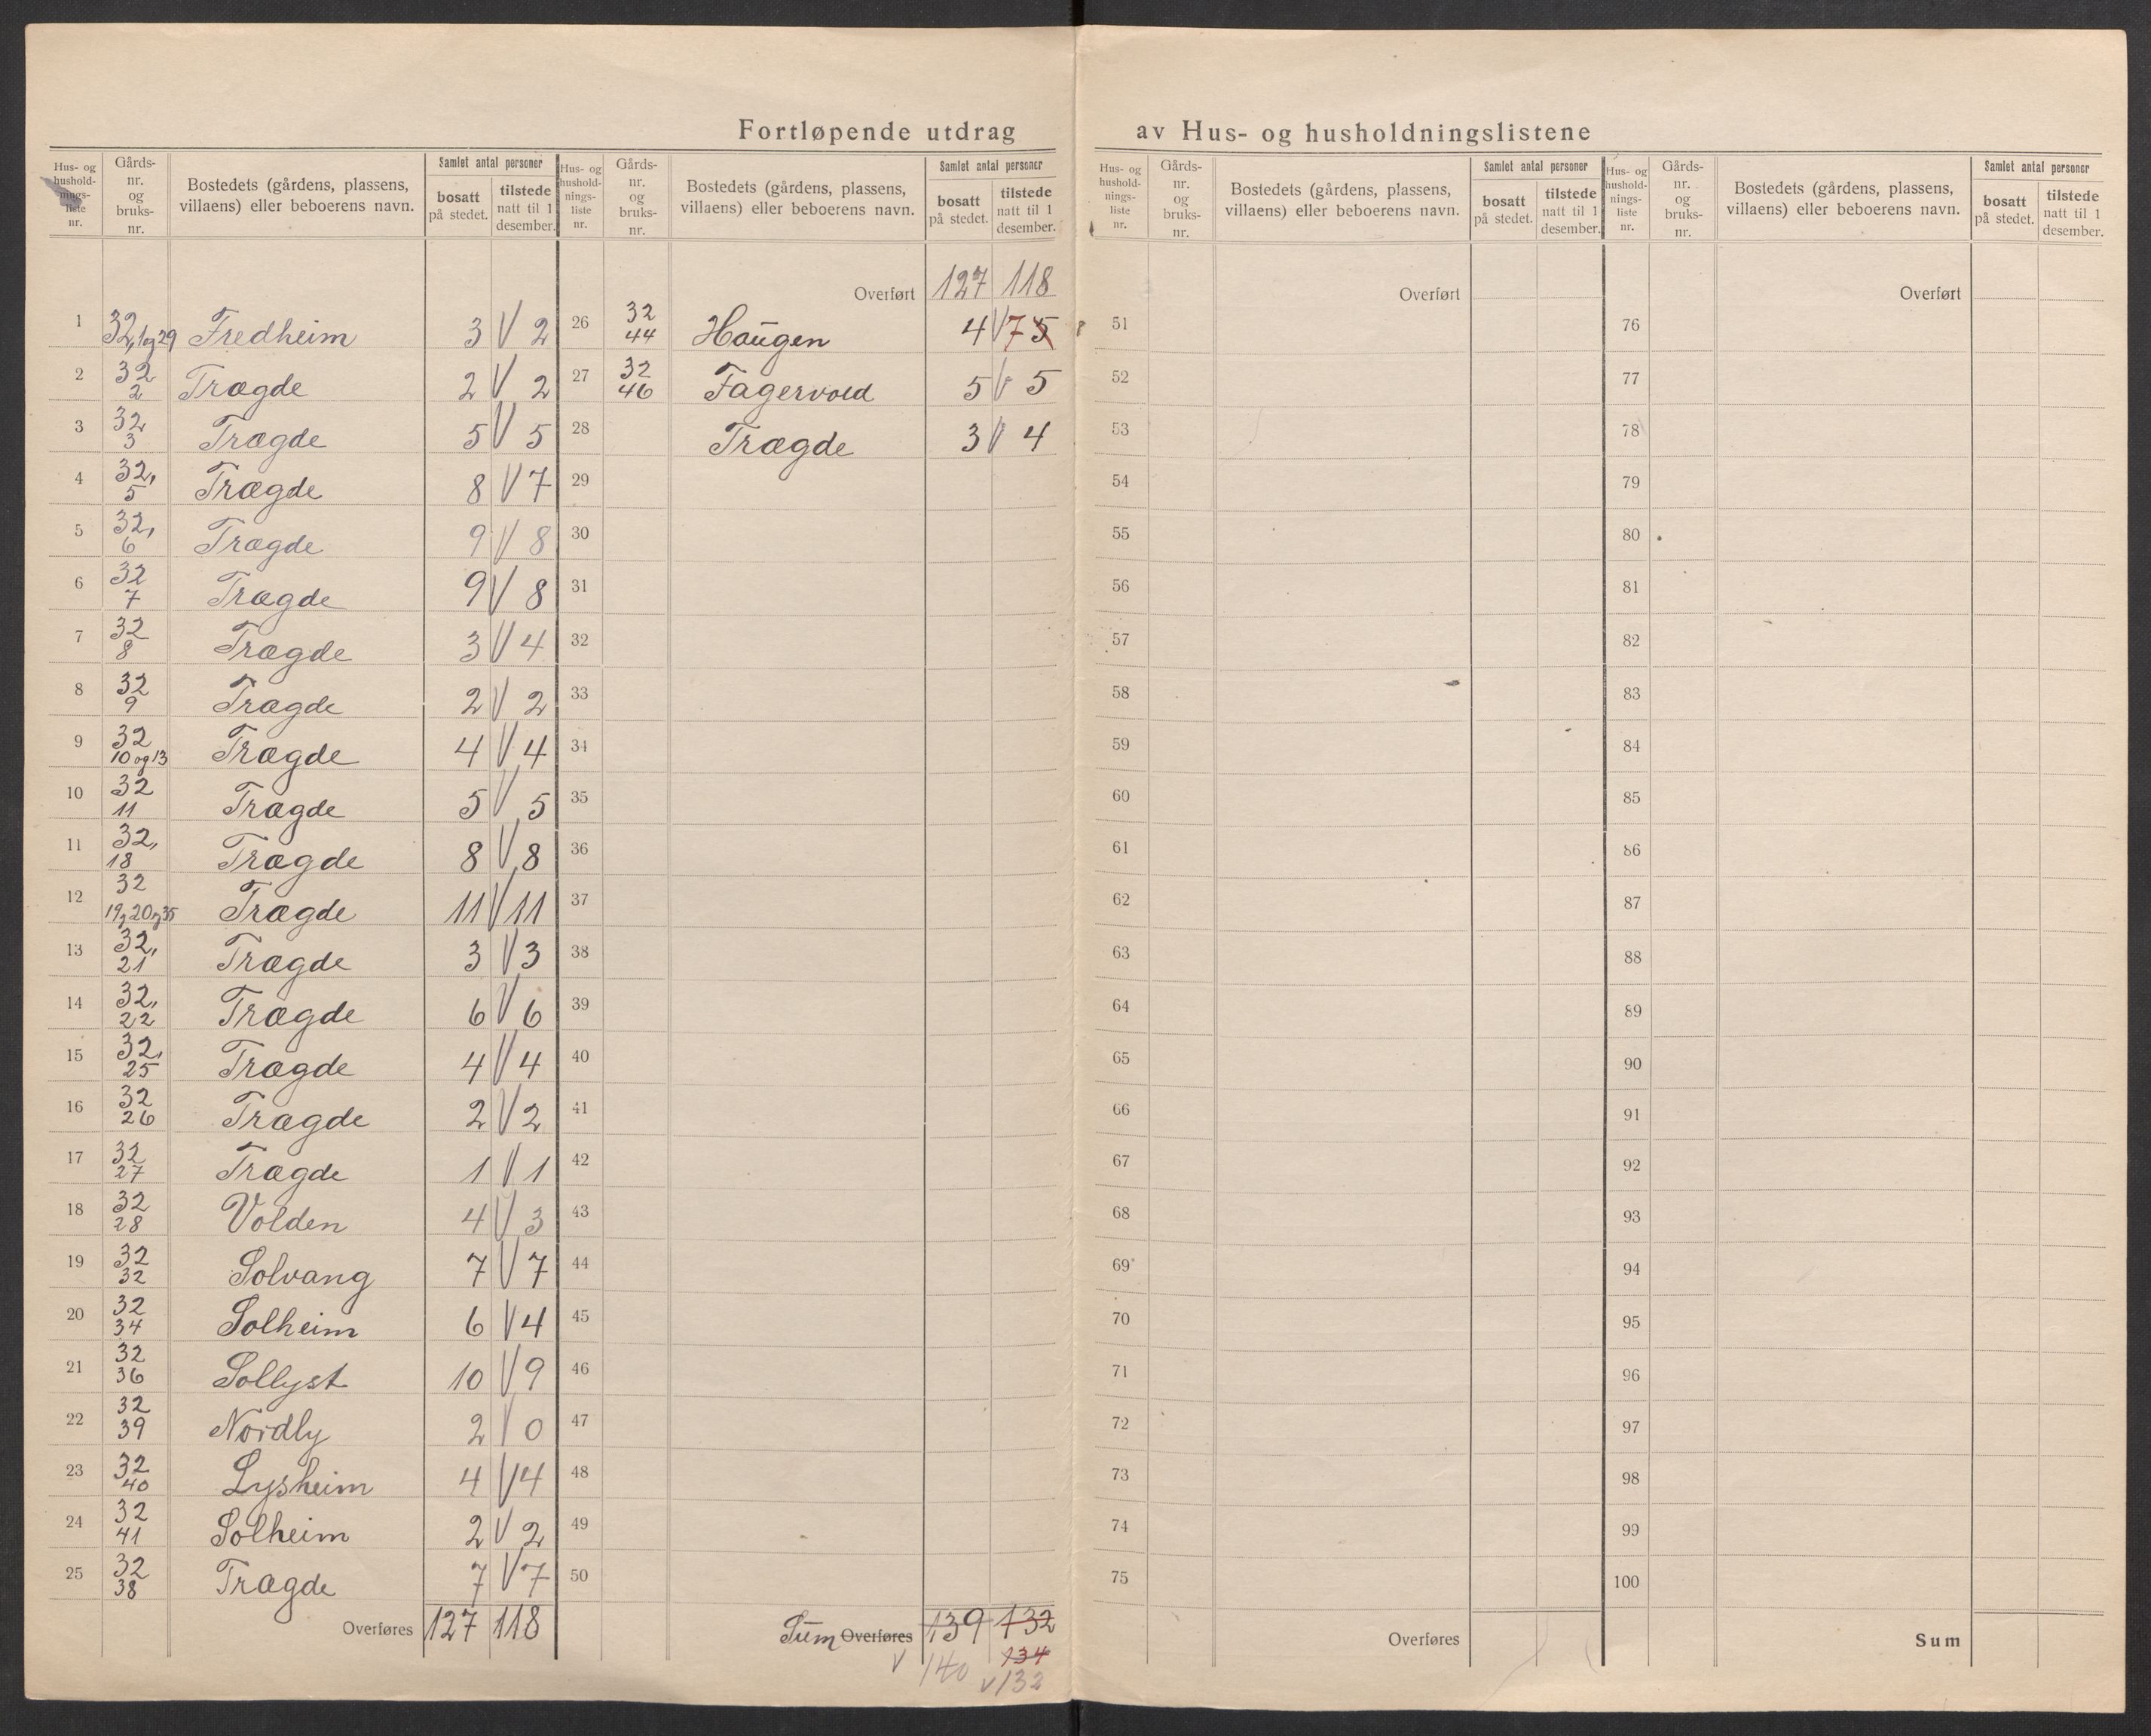 Fortløpende utdrag av Hus- og husholdningslistene
Hus- og hushold-nings-liste nr. Gårds-nr. og bruks-nr. Bostedets (gårdens, plassens, villaens) eller beboerens navn. Samlet antal personer bosatt på stedet. tilstede natt til 1 desember.
1 32, 1 og 29 Fredheim 3 V 2
2 32 2 Trægde 2 V 2
3 32 3 Trægde 5 V 5
4 32, 5 Trægde 8 V 7
5 32, 6 Trægde 9 V 8
6 32 7 Trægde 9 V 8
7 32 8 Trægde 3 V 4
8 32 9 Trægde 2 V 2
9 32 10 og 13 Trægde 4 V 4
10 32 11 Trægde 5 V 5
11 32, 18 Trægde 8 V 8
12 32 19, 20 og 35 Trægde 11 V 11
13 32, 21 Trægde 3 V 3
14 32, 22 Trægde 6 V 6
15 32, 25 Trægde 4 V 4
16 32 26 Trægde 2 V 2
17 32 27 Trægde 1 V 1
18 32 28 Volden 4 V 3
19 32 32 Solvang 7 V 7
20 32 34 Solheim 6 V 4
21 32 36 Sollyst 10 V 9
22 32 39 Nordly 2 V 0
23 32 40 Lysheim 4 V 4
24 32 41 Solheim 2 V 2
25 32 38 Trægde 7 V 7
Overføres 127 118
Hus- og hushold-nings-liste nr. Gårds-nr. og bruks-nr. Bostedets (gårdens, plassens, villaens) eller beboerens navn. Samlet antal personer bosatt på stedet. tilstede natt til 1 desember.
Overført 127 118
26 32 44 Haugen 4 V 7 5
27 32 46 Fagervold 5 V 5
28 Trægde 3 V 4
29
30
31
32
33
34
35
36
37
38
39
40
41
42
43
44
45
46
47
48
49
50
Sum Overføres 139 132
134
V 140 V 132
Hus- og hushold-nings-liste nr. Gårds-nr. og bruks-nr. Bostedets (gårdens, plassens, villaens) eller beboerens navn. Samlet antal personer bosatt på stedet. tilstede natt til 1 desember.
Overført
51
52
53
54
55
56
57
58
59
60
61
62
63
64
65
66
67
68
69
70
71
72
73
74
75
Overføres
Hus- og hushold-nings-liste nr. Gårds-nr. og bruks-nr. Bostedets (gårdens, plassens, villaens) eller beboerens navn. Samlet antal personer bosatt på stedet. tilstede natt til 1 desember.
Overført
76
77
78
79
80
81
82
83
84
85
86
87
88
89
90
91
92
93
94
95
96
97
98
99
100
Sum